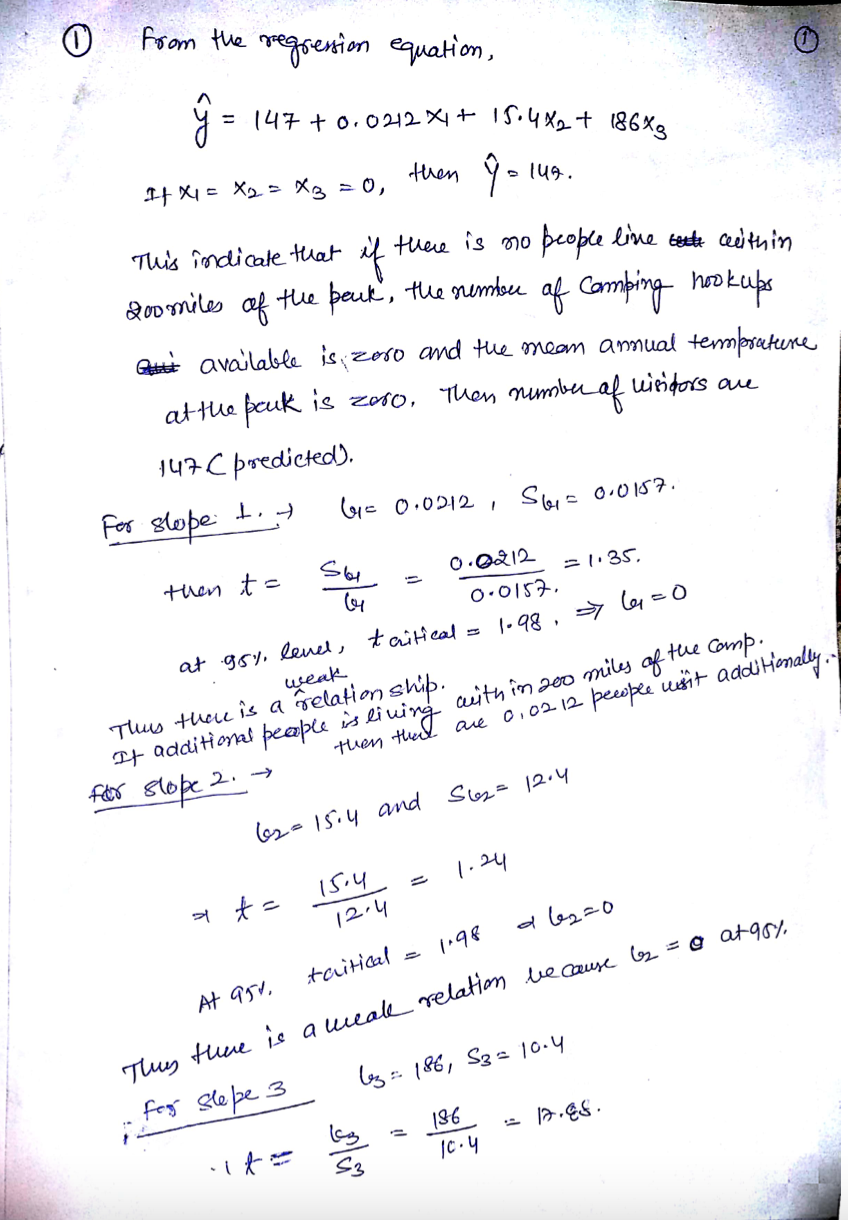 ① From the regression equation, ①
ŷ = 147 + 0.0212 x1 + 15.4 x2 + 186 x3
If x1 = x2 = x3 = 0, then ŷ = 147.
This indicate that if there is no people live within
200 miles of the park, the number of Camping hookups
available is zero and the mean annual temprature
at the park is zero. Then number of visitors are
147 (predicted).
For slope 1. → b1 = 0.0212 , Sb1 = 0.0157.
then t = Sb1/b1 = 0.0212/0.0157. = 1.35.
at 95% level, t critical = 1.98 , ⇒ b1 = 0
Thus there is a weak relation ship.
If additional people is living with in 200 miles of the comp.
then there are 0.0212 people visit additionally.
for slope 2. →
b2 = 15.4 and Sb2 = 12.4
⇒ t = 15.4/12.4 = 1.24
At 95%, tcritical = 1.98 ⇒ b2=0
Thus there is a weak relation because b2 = 0 at 95%.
For slope 3 b3 = 186, S3 = 10.4
t = b3/S3 = 186/10.4 = 17.88.